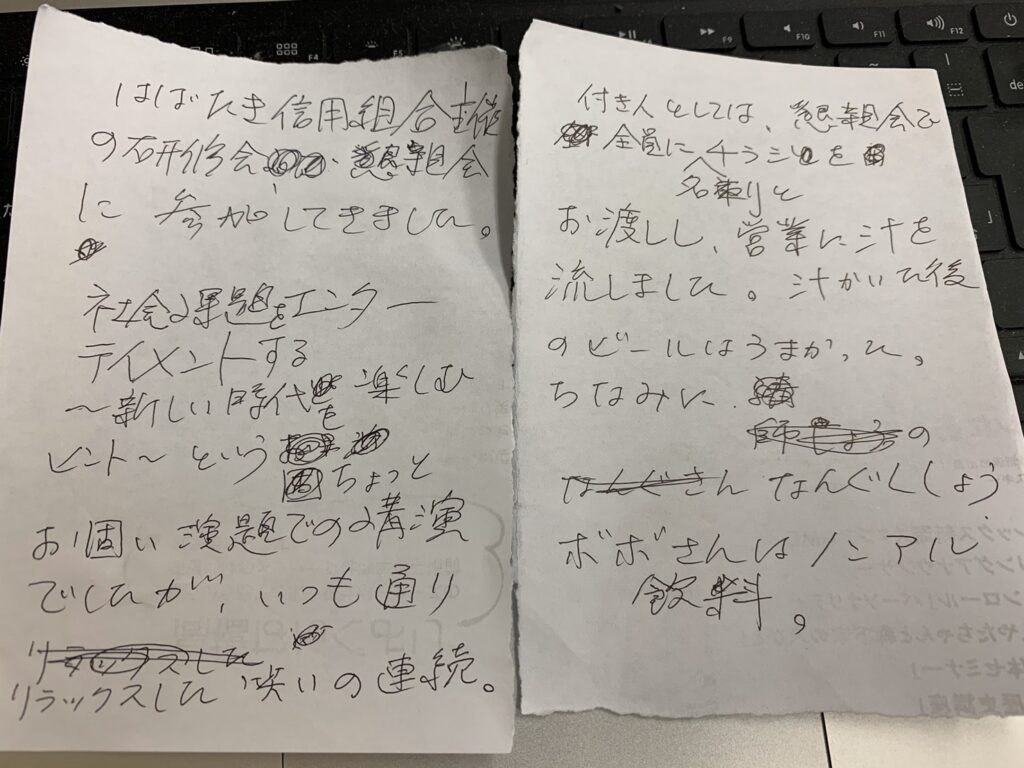 はばたき信用組合主催
の研修会、懇親会
に参加してきました。
社会課題をエンター
テイメントする
～新しい時代を楽しむ
ヒント～という
ちょっと
お固い演題での講演
でしたが、いつも通り
リラックスした
リラックスした笑いの連続。
付き人としては、懇親会で
全員にチラシを
名刺と
お渡しし、営業に汁を
流しました。汁かいた後
のビールはうまかった。
ちなみに
師しょうの
なんぐさん なんぐししょう
ボボさんはノンアル
飲料。
F4
F5
F9
F10
F11
F12